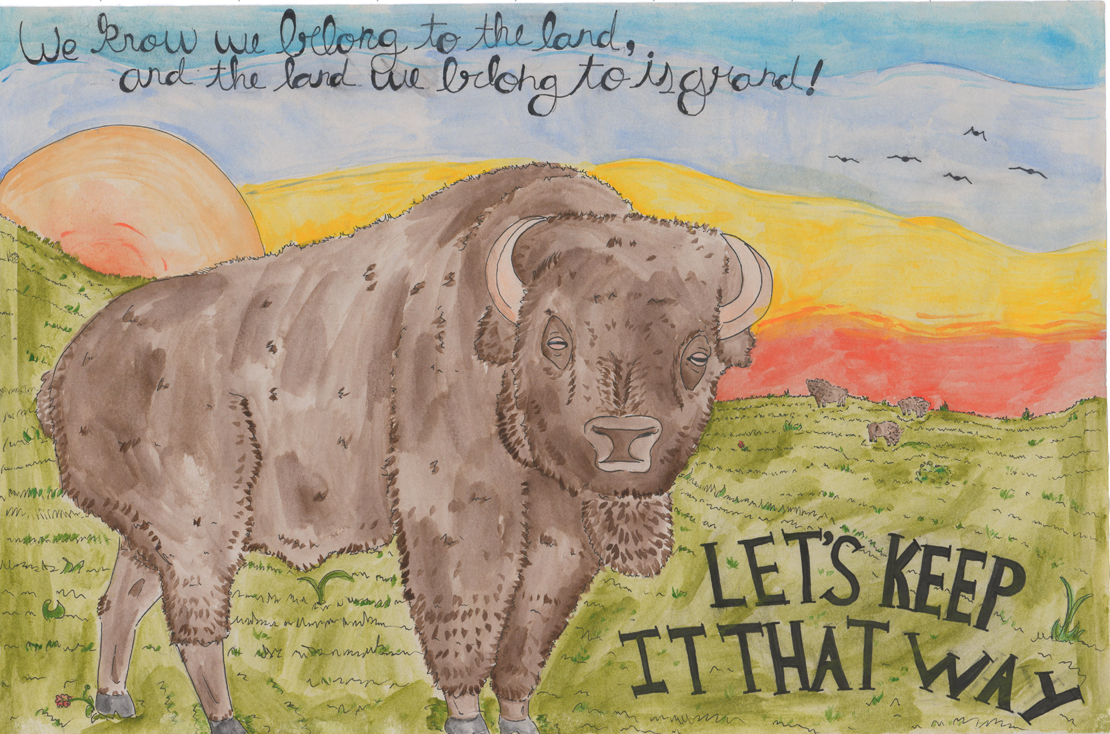 We know we belong to the land,
and the land we belong to is grand!
LET'S KEEP
IT THAT WAY